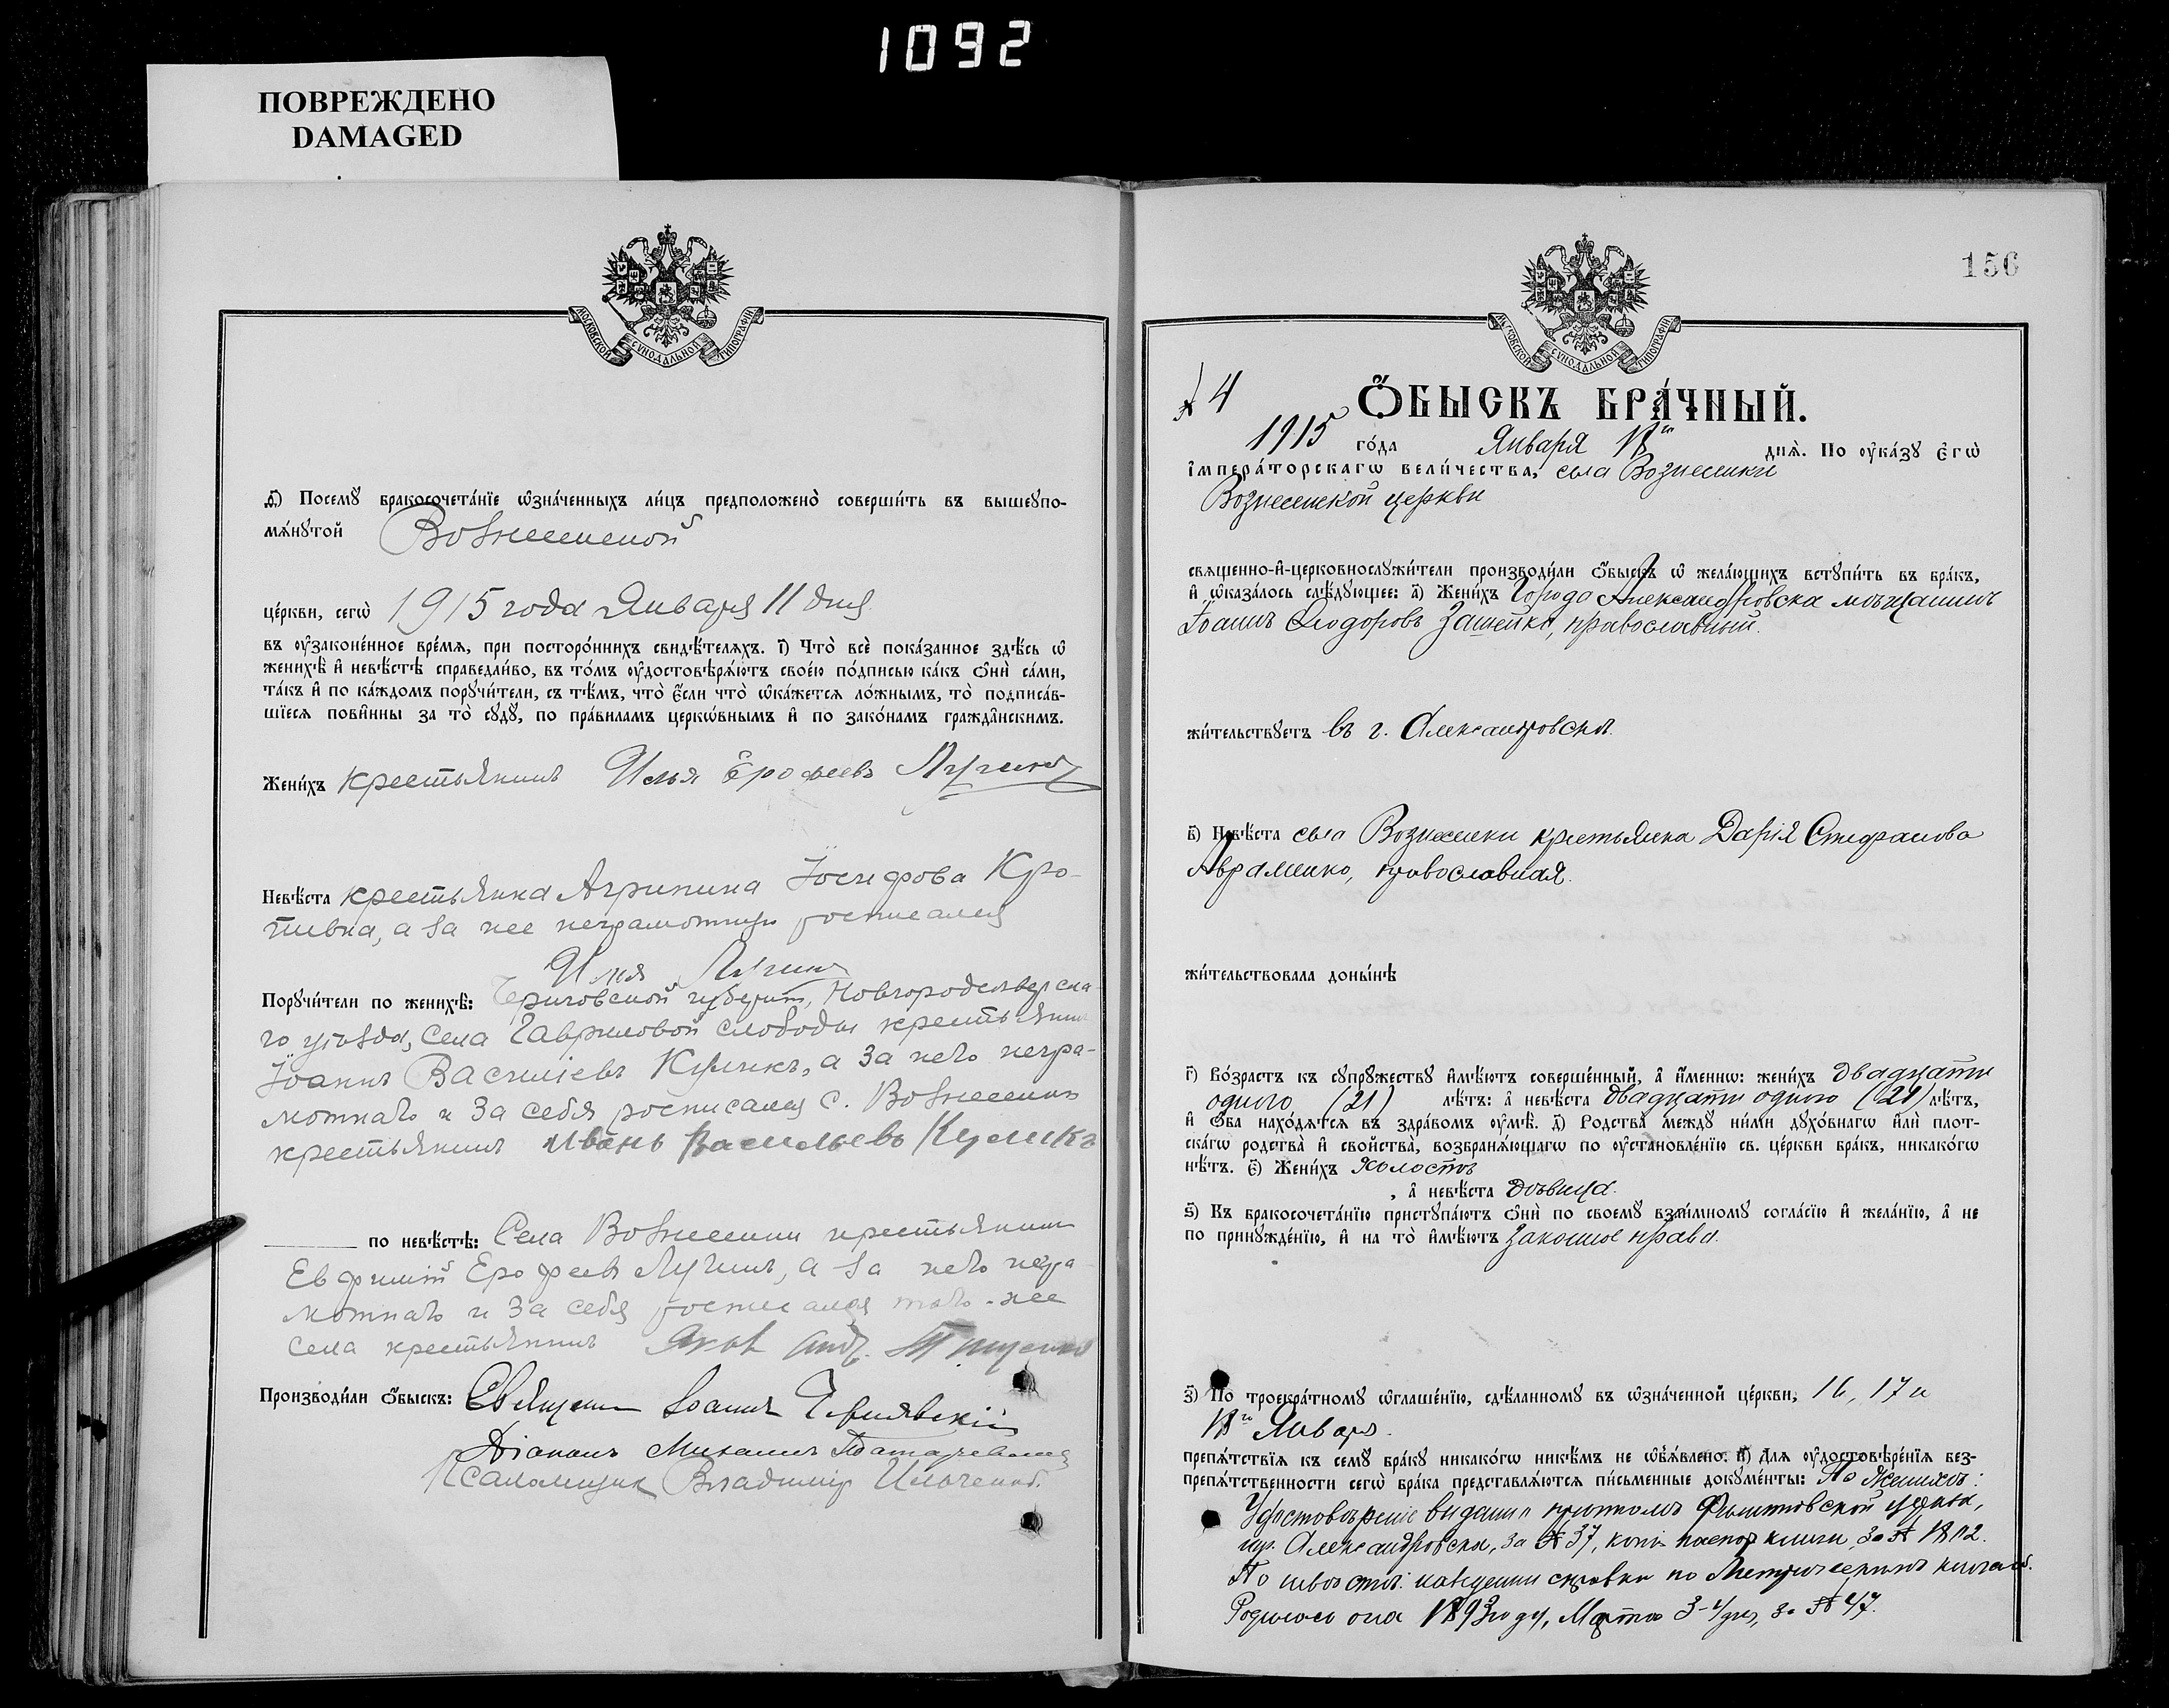 1092
ПОВРЕЖДЕНО
DAMAGED
МОСКОВСКОЙ СѴНОДАЛЬНОЙ ТИПОГРАФІИ
д҃) Посемꙋ бракосочета́нїе ѡзна́ченныхъ ли́цъ предположено̀ соверши́ть въ вышеꙋпо-
мѧ́нꙋтой Вознесенской
це́ркви, сегѡ̀ 1915 года Января 11 дня
въ ᲂу҆законе́нное вре́мѧ, при посторо́ннихъ свидѣ́телѧхъ. і҃) Что̀ всѐ пока́занное здѣ́сь ѡ҆
женихѣ̀ и҆ невѣ́стѣ справедли́во, въ то́мъ ᲂу҆достовѣрѧ́ютъ свое́ю по́дписью ка́къ ѻ҆нѝ са́ми,
та́къ и҆ по ка́ждомъ порꙋчи́тели, съ тѣ́мъ, что̀ є҆́сли что̀ ѡ҆ка́жетсѧ ло́жнымъ, то̀ подписа́в-
шїесѧ пови́нны за то̀ сꙋдꙋ̀, по пра́виламъ церко́внымъ и҆ по зако́намъ гражда́нскимъ.
Жени́хъ крестьянинъ Илья Ерофеевъ Лугинъ
Невѣ́ста крестьянка Агрипина Іосифова Кро-
пивка, а за нее неграмотную росписался
Илья Лугинъ
Порꙋчи́тели по женихѣ̀: Черниговской губерніи, Новгородсѣверска-
го уѣзда, села Гавриловой слободы крестьянинъ
Іоаннъ Василіевъ Куликъ, а за него негра-
мотнаго и за себя росписался с. Вознесенки
крестьянинъ Иванъ Васильевъ Куликъ
по невѣ́стѣ: Села Вознесенки крестьянинъ
Евфимій Ерофеевъ Лугинъ, а за него негра
мотнаго и за себя росписался того-же
села крестьянинъ Яковъ Анд.
Производи́ли ѻ҆́быскъ: Священникъ Іоаннъ Чернявскій
Діаконъ Михаилъ
Псаломщик Владимір Ильченко.
156
МОСКОВСКОЙ СѴНОДАЛЬНОЙ ТИПОГРАФІИ
№ 4
Ѻ҆́БЫСКЪ БРА́ЧНЫЙ.
1915 го́да Января 18го днѧ̀. По ᲂу҆ка́зꙋ Є҆гѡ̀
і҆мпера́торскагѡ вели́чества, села Вознесенки
Вознесенской церкви
свѧщенно-и҆-церковнослꙋжи́тели производи́ли ѻ҆́быскъ ѡ҆ жела́ющихъ встꙋпи́ть въ бра́къ,
и҆ ѡ҆каза́лось слѣ́дꙋющее: а҃) Жени́хъ Города Александровска мѣщанинъ
Іоаннъ Ѳеодоровъ Зашейко, православный.
жи́тельствꙋетъ въ г. Александровскѣ.
в҃) Невѣ́ста села Вознесенки крестьянка Дарія Стефанова
Авраменко, православная.
жи́тельствовала доны́нѣ
г҃) Во́зрастъ къ сꙋпрꙋ́жествꙋ и҆мѣ́ютъ соверше́нный, а҆ и҆́менно: жени́хъ двадцати
одного (21) лѣ́тъ: а҆ невѣ́ста двадцати одного (21) лѣ́тъ,
и҆ ѻ҆́ба нахо́дѧтсѧ въ здра́вомъ ᲂу҆мѣ̀. д҃) Родства̀ междꙋ ни́ми дꙋхо́внагѡ и҆лѝ плот-
ска́гѡ родства̀ и҆ сво́йства̀, возбранѧ́ющагѡ по ᲂу҆становле́нїю св. це́ркви бра́къ, никако́гѡ
нѣ́тъ. є҃) Жени́хъ холостъ
, а҆ невѣ́ста дѣвица.
ѕ҃) Къ бракосочета́нїю пристꙋпа́ютъ ѻ҆нѝ по своемꙋ̀ взаи́мномꙋ согла́сїю и҆ жела́нїю, а҆ не
по принꙋжде́нїю, и҆ на то̀ и҆мѣ́ютъ законное право.
з҃) По троекра́тномꙋ ѡ҆глаше́нїю, сдѣ́ланномꙋ въ ѡ҆зна́ченной це́ркви, 16, 17 и
18го Января.
препѧ́тствїѧ къ семꙋ̀ бра́кꙋ никако́гѡ никѣ́мъ не ѡ҆б̾ѧ́влено. и҃) Длѧ ᲂу҆достовѣре́нїѧ без-
препѧ́тственности сегѡ̀ бра́ка представлѧ́ютсѧ пи́сьменные докꙋме́нты: По женихѣ:
Удостовѣреніе выданн причтомъ Филипповской церкви,
гор. Александровска, за № 37, копія паспор. книги, за № 1812.
По невѣстѣ: наведенъ справки по Метрическимъ книгамъ.
Родилась она 1893 году, Марта 3-го дня, за № 47.